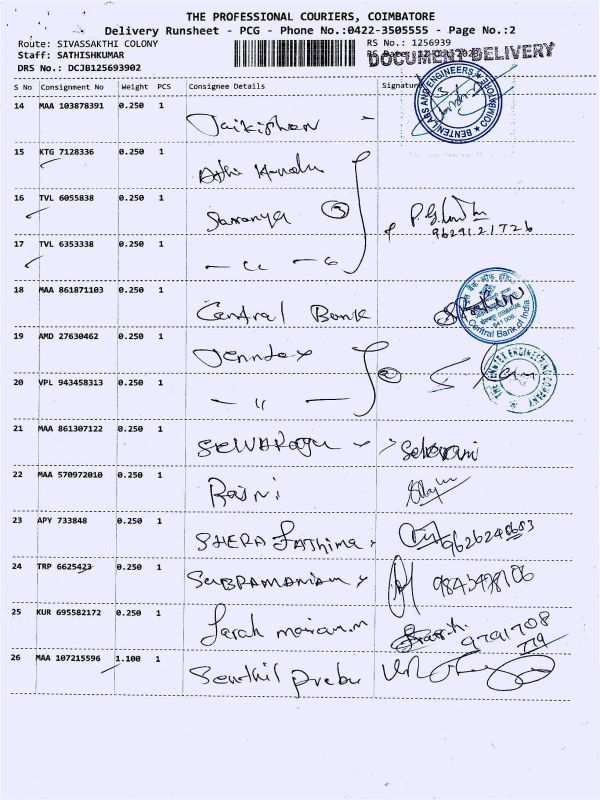 THE PROFESSIONAL COURIERS, COIMBATORE
Delivery Runsheet - PCG - Phone No.:0422-3505555 - Page No.:2
Route: SIVASSAKTHI COLONY
RS No.: 1256939
Staff: SATHISHKUMAR
DOCUMENT DELIVERY
DRS No.: DCJB125693902
S No Consignment No Weight PCS Consignee Details Signature
14 MAA 103878391 0.250 1 Jaikishan -
BENTEN LABS AND ENGINEERS COIMBATORE
15 KTG 7128336 0.250 1
16 TVL 6055838 0.250 1 Saranya 3
9629121726
17 TVL 6353338 0.250 1 - " -
18 MAA 861871103 0.250 1 Central Bank
Central Bank of India
19 AMD 27630462 0.250 1 Jenntex
THE JENNTEX ENGINEERING COMPANY
20 VPL 943458313 0.250 1 - " - 2
21 MAA 861307122 0.250 1 Selvarani
22 MAA 570972010 0.250 1 Rajni
23 APY 733848 0.250 1 SHERA Fathima
24 TRP 6625423 0.250 1 SUBRAMANIAM
25 KUR 695582172 0.250 1
9791708
779
26 MAA 107215596 1.100 1 Senthil Prabu